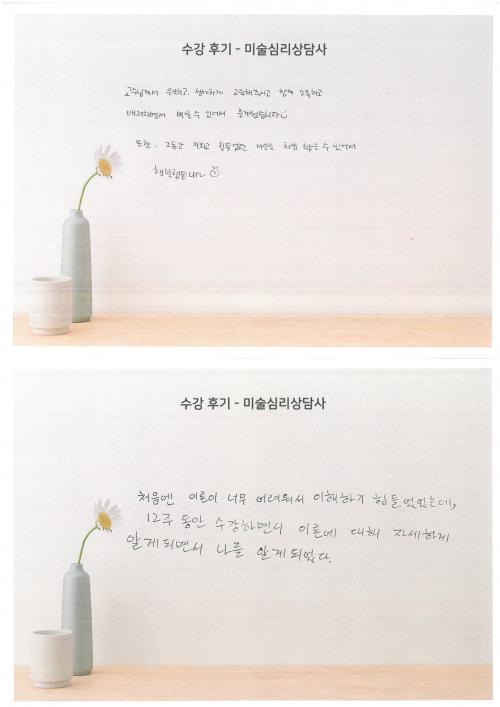 수강 후기 - 미술심리상담사
교수님께서 우아하고 섬세하게 교육해주시고 함께 소통하고
배려하면서 배울 수 있어서 즐거웠습니다
또한, 그동안 지치고 힘들었던 마음을 치유 받을 수 있어서
행복했습니다
수강 후기 - 미술심리상담사
처음엔 이론이 너무 어려워서 이해하기 힘들었었는데,
12주 동안 수강하면서 이론에 대해 자세하게
알게되면서 나를 알게되었다.